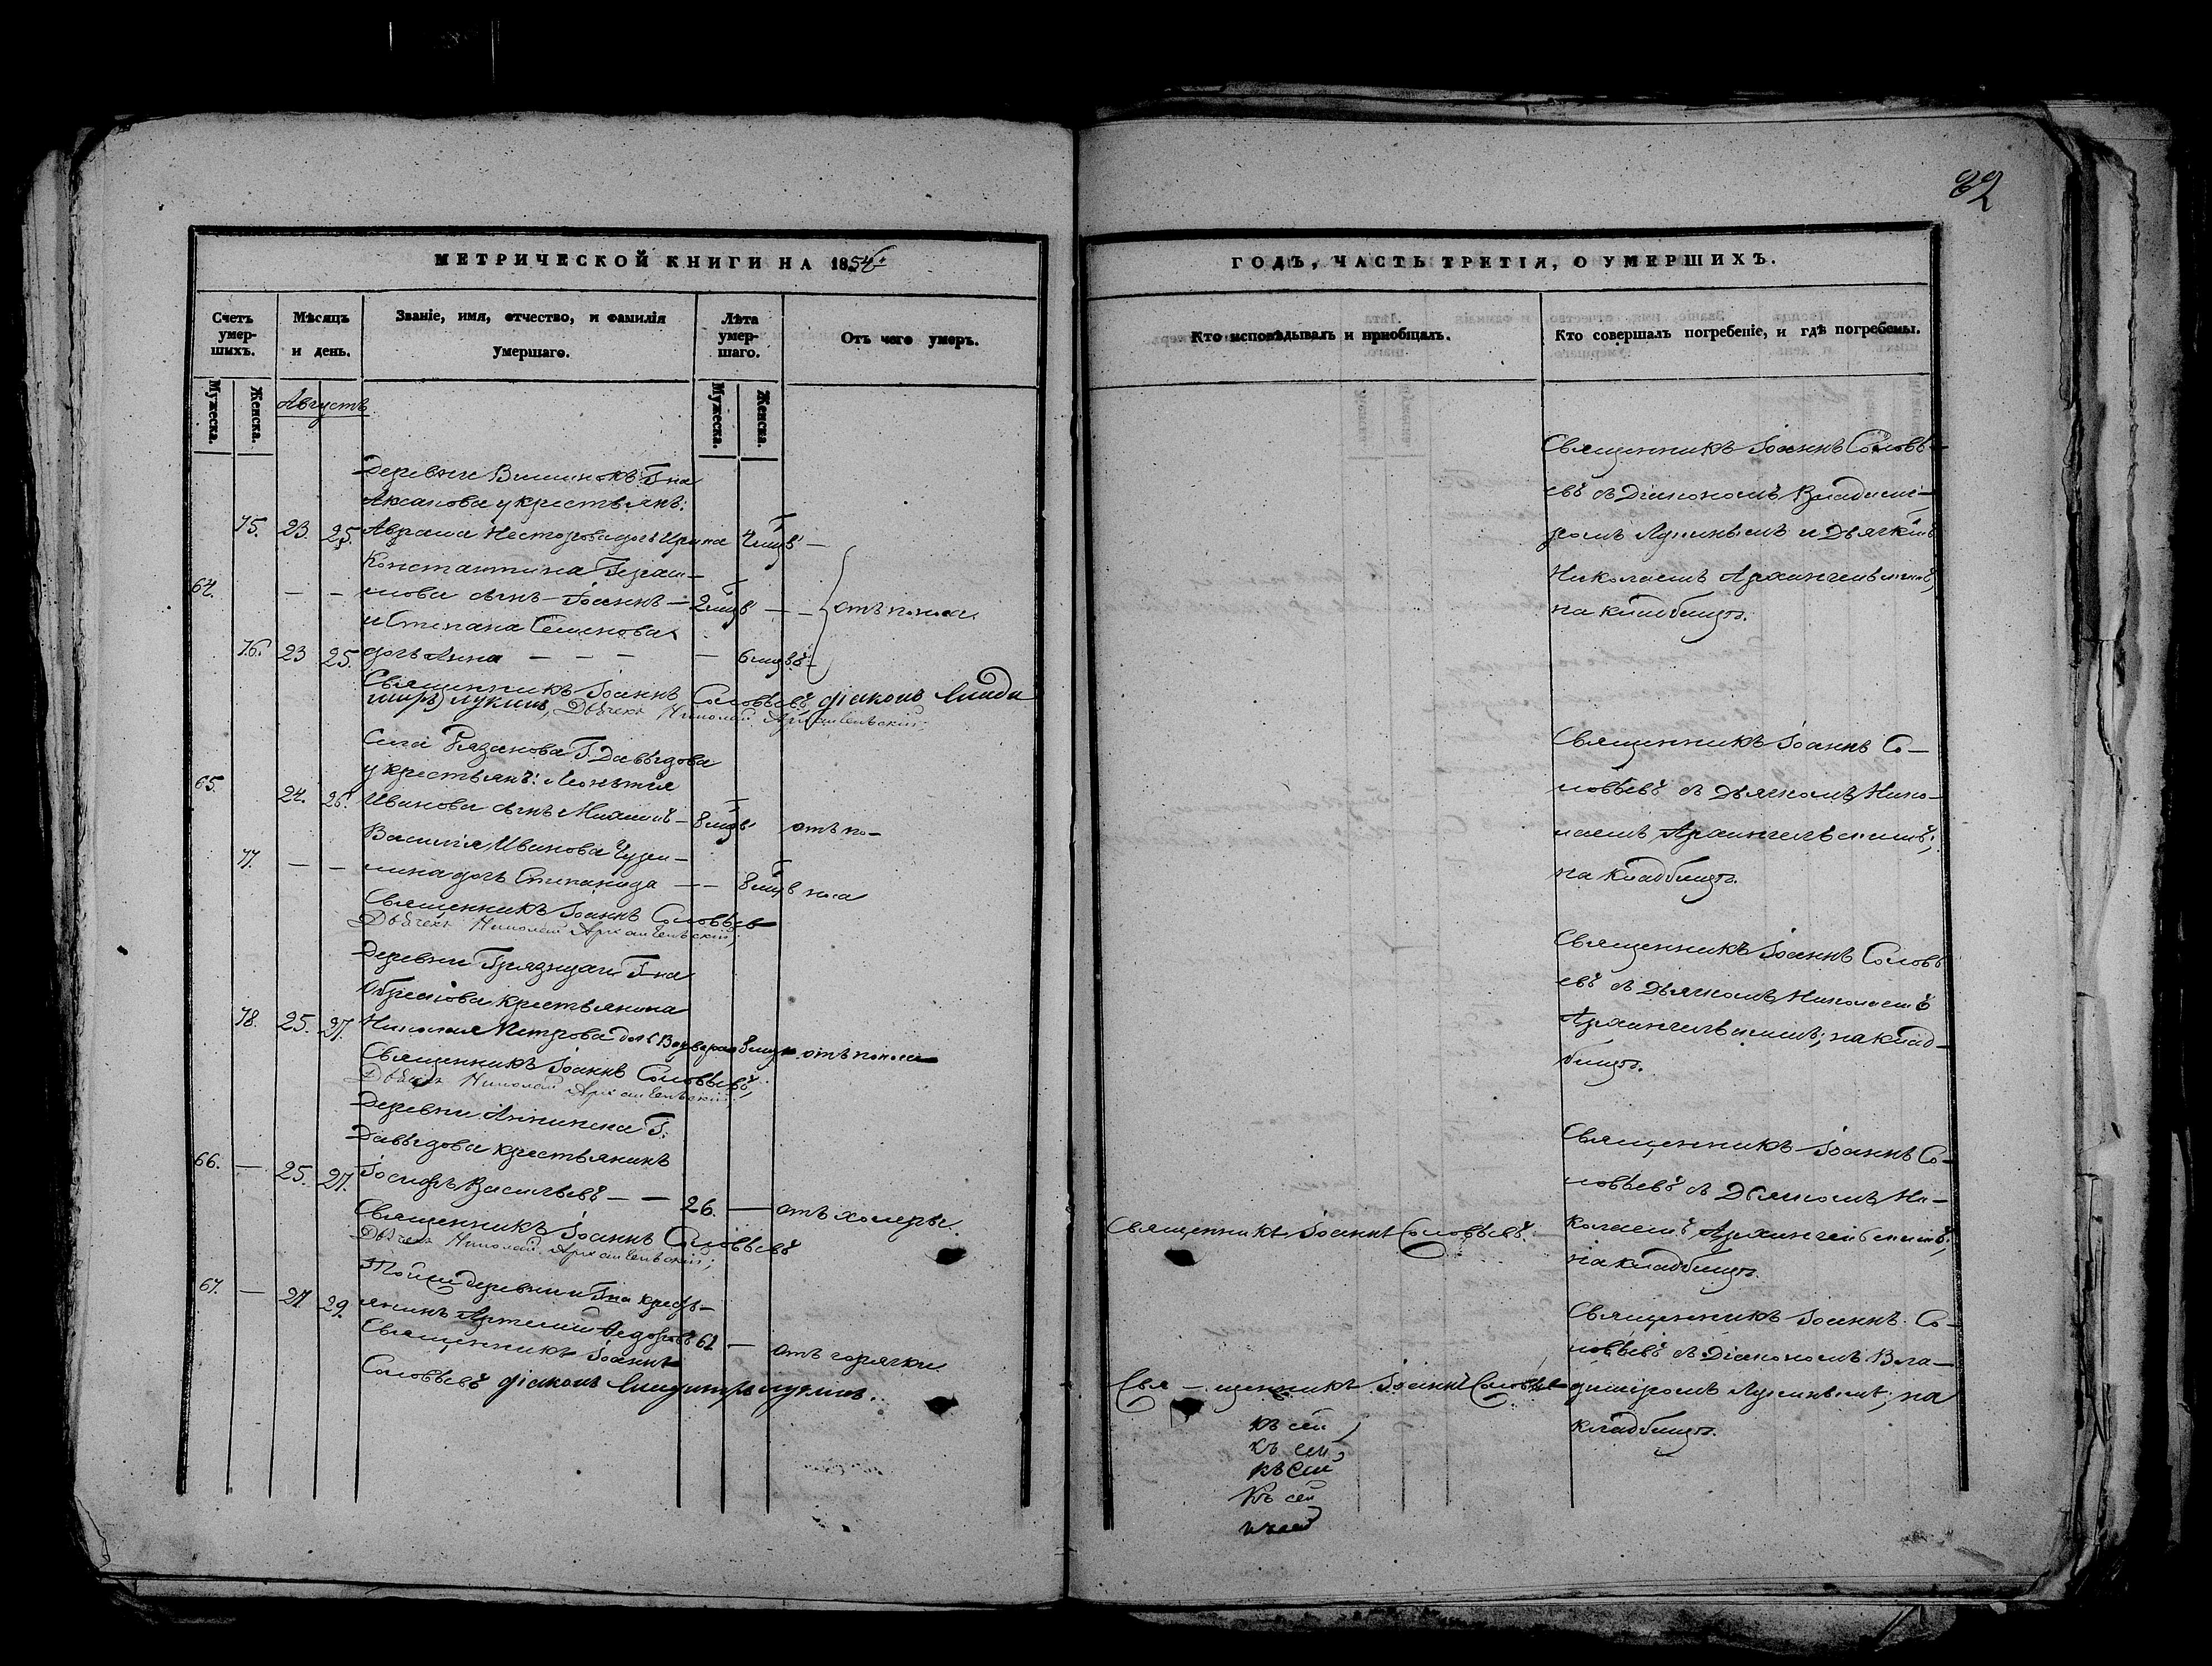 82
МЕТРИЧЕСКОЙ КНИГИ НА 1854
ГОДЪ, ЧАСТЬ ТРЕТІЯ, О УМЕРШИХЪ.
Счетъ умер-шихъ.
Мѣсяцъ и день.
Званіе, имя, отчество, и фамилія умершаго.
Лѣта умер-шаго.
Отъ чего умеръ.
Кто исповѣдывалъ и пріобщалъ.
Кто совершалъ погребеніе, и гдѣ погребены.
Мужеска.
Женска.
Мужеска.
Женска.
Августъ
Деревни Г-на
у крестьянъ:
75. 23. 25. Аврама Нестерова дочь Ирина
Константина Гераси-
64. — — мова сынъ Іоаннъ — 2 — — отъ поноса
и Степана Семенова
76. 23 25. дочь Анна — — — — 6
Священникъ Іоаннъ Соловьевъ, діаконъ Влади
миръ Лукинъ, Дьячекъ Николай Архангельскій;
Священникъ Іоаннъ Соловь-
евъ съ Діакономъ Владими-
ромъ Лукинымъ и Дьячкомъ
Николаемъ Архангельскимъ,
на кладбищѣ.
Села Рязанова Г. Давыдова
65. у крестьянъ: Леонтія
24. 26. Иванова сынъ — 8 отъ по-
Василія Иванова
77. — — дочь Степанида — — 8 носа
Священникъ Іоаннъ Соловьевъ
Дьячекъ Николай Архангельскій;
Священникъ Іоаннъ Со-
ловьевъ съ Дьячкомъ Нико-
лаемъ Архангельскимъ;
на кладбищѣ.
Деревни Г-на
крестьянина
78. 25. 27. Николая Петрова дочь Варвара 8 отъ поноса
Священникъ Іоаннъ Соловьевъ,
Дьячекъ Николай Архангельскій;
Священникъ Іоаннъ Соловь
евъ съ Дьячкомъ Николаемъ
Архангельскимъ; на клад-
бищѣ.
Деревни Аннина Г.
Давыдова крестьянинъ
66. — 25. 27. Іосифъ Васильевъ — — 26. — отъ холеры.
Священникъ Іоаннъ Соловьевъ
Дьячекъ Николай Архангельскій;
Священникъ Іоаннъ Соловьевъ.
Священникъ Іоаннъ Со-
ловьевъ съ Дьячкомъ Ни-
колаемъ Архангельскимъ;
на кладбищѣ.
Той же деревни и Г-на кресть-
67. — 27 29. янинъ Артемій Федоровъ — отъ горячки
Священникъ Іоаннъ
Соловьевъ діаконъ Владимиръ Лукинъ.
Свя — щенникъ Іоаннъ Соловьевъ
Священникъ Іоаннъ Со-
ловьевъ съ Діакономъ Вла-
димиромъ Лукинымъ; на
кладбищѣ.
къ сей
къ сей
къ сей
Къ сей